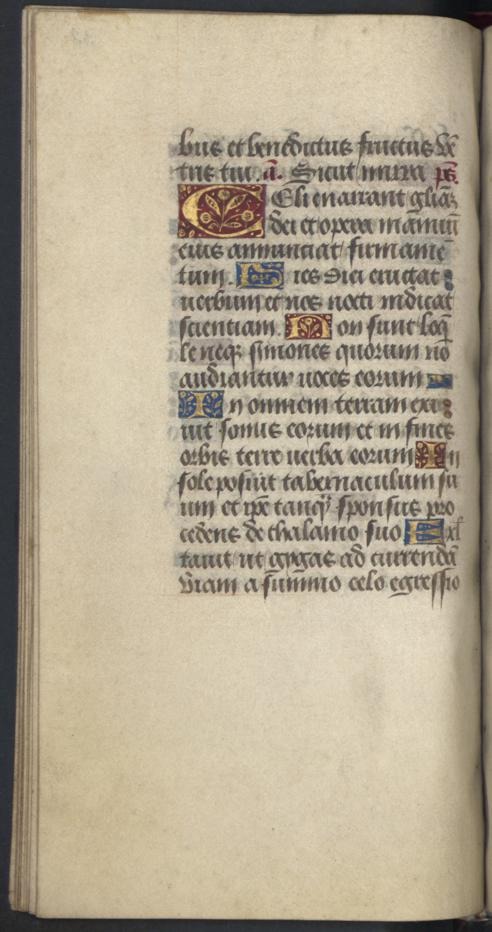 bus et benedictus fructus vē
tris tui. a. Sicut mirra ps.
Celi enarrant gliā
dei et opera manuū
eius annunciat firmamē
tum. Dies diei eructat
uerbum et nox nocti indicat
scientiam. Non sunt loq̄
le neqꝫ simones quorum nō
audiantur uoces eorum
In omnem terram exi
uit sonus eorum et in fines
orbis terre uerba eorum In
sole posuit tabernaculum su
um et ip̄e tanqꝫ sponsus pro
cedens de thalamo suo Exl
tauit ut gygas ad currendā
viam a summo celo egressio